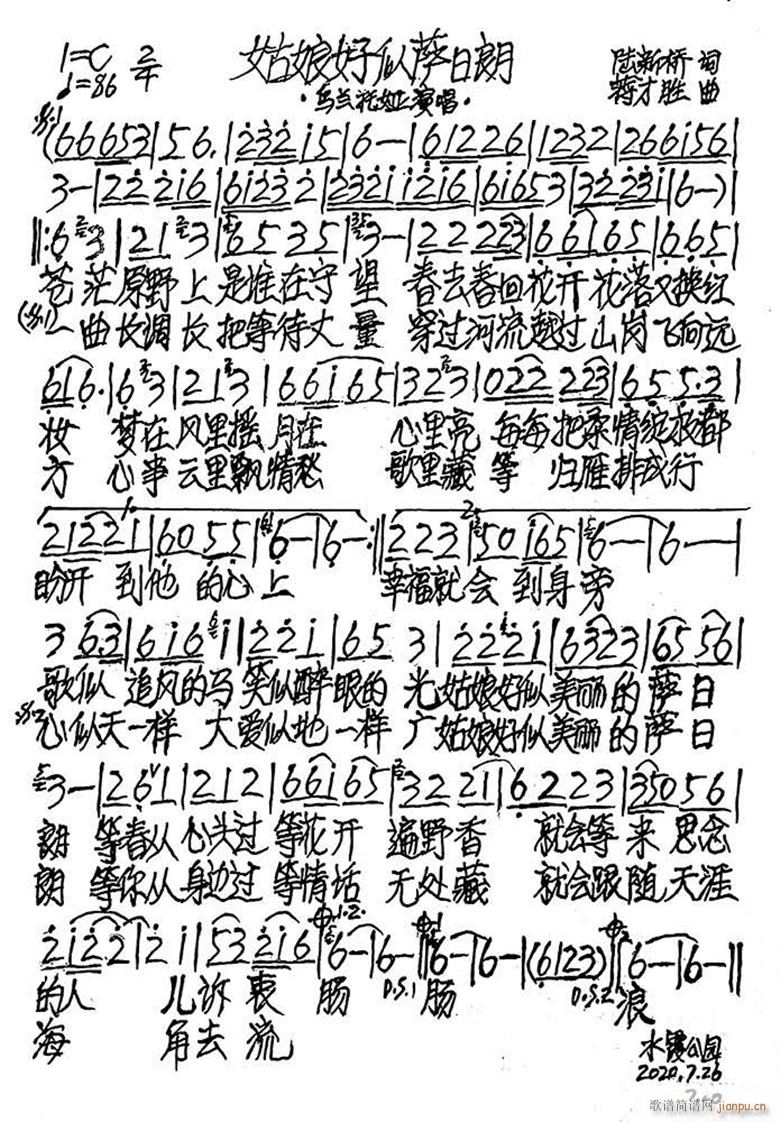 1=C 2/4 姑娘好似萨日朗 陆新桥 词
♩=86 ·乌兰托娅演唱· 蒋才胜 曲
(66653|56.|2321 5|6-|61226|1232|266156|
3-|222216|61232|2321 1216|61653|32231|6-)|
‖:63|213|6535|3-|22223|66165|665|
苍茫原野上是谁在守望 春去春回花开花落又换红
一曲长调长把等待丈量 穿过河流越过山岗飞向远
616.|63|213|66165|323|022223|6555.3|
妆 梦在风里摇月在 心里亮 每每把柔情绽放都
方 心事云里飘情愁 歌里藏 等 归雁排成行
21221|6055|6-|6-:‖223|50165|6-|6-|
盼开 到他的心上 幸福就会到身旁
363|6161|221|653|22221|63323|6556|
歌似追风的马笑似醉眼的光姑娘好似美丽的萨日
心似天一样 大爱似地一样广姑娘好似美丽的萨日
3-|261|212|66165|3221|6223|35056|
朗 等春从心头过等花开 遍野香 就会等来思念
朗 等你从身边过等情话 无处藏 就会跟随天涯
2122|21|53216|6-|6-‖6-|6-|(6123)‖6-|6-‖
的人 儿诉衷肠 D.S.1 肠 D.S.2 浪
海 角去流
水霞公园
2020.7.26
歌谱简谱网
jianpu.cn